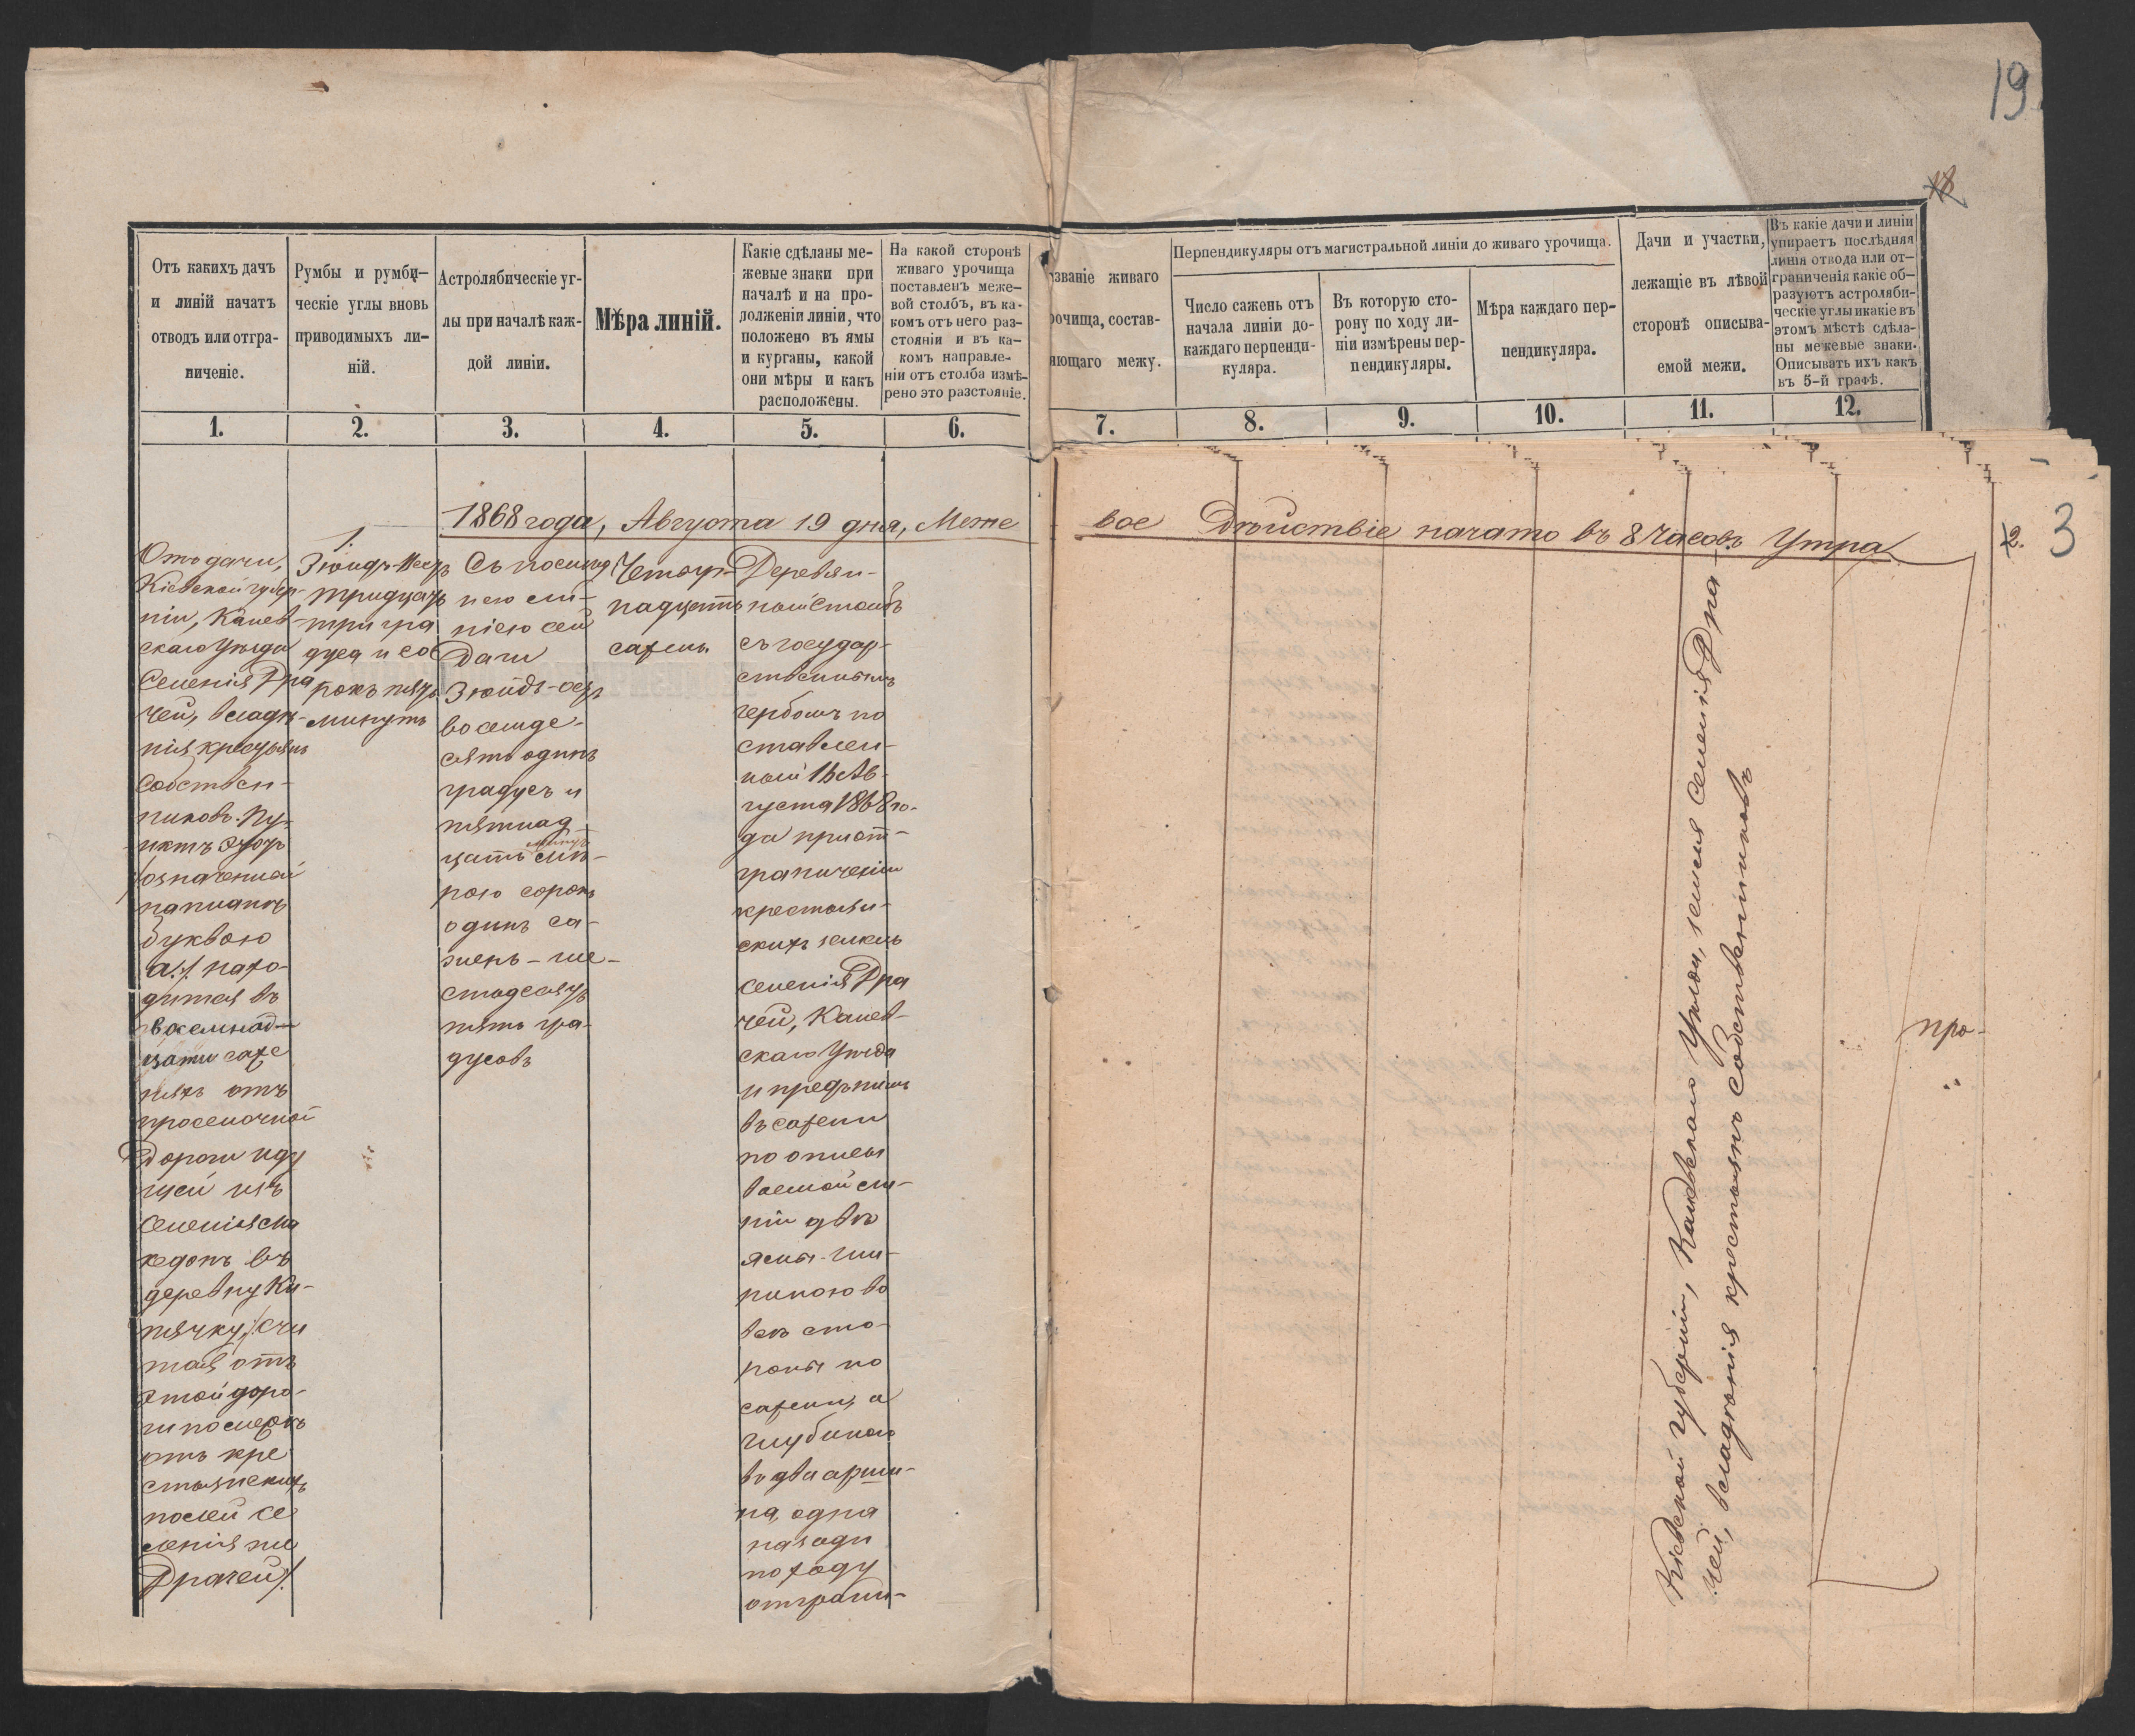 19
18
Отъ какихъ дачъ
и линій начатъ
отводъ или отгра-
ниченіе.
Румбы и румби-
ческіе углы вновь
приводимыхъ ли-
ній.
Астролябическіе уг-
лы при началѣ каж-
дой линіи.
Мѣра линій.
Какіе сдѣланы ме-
жевые знаки при
началѣ и на про-
долженіи линіи, что
положено въ ямы
и курганы, какой
они мѣры и какъ
расположены.
На какой сторонѣ
живаго урочища
поставленъ меже-
вой столбъ, въ ка-
комъ отъ него раз-
стояніи и въ ка-
комъ направле-
ніи отъ столба измѣ-
рено это разстояніе.
званіе живаго
рочища, состав-
яющаго межу.
Перпендикуляры отъ магистральной линіи до живаго урочища.
Число сажень отъ
начала линіи до-
каждаго перпенди-
куляра.
Въ которую сто-
рону по ходу ли-
ніи измѣрены пер-
пендикуляры.
Мѣра каждаго пер-
пендикуляра.
Дачи и участки,
лежащіе въ лѣвой
сторонѣ описыва-
емой межи.
Въ какіе дачи и линіи
упираетъ послѣдняя
линія отвода или от-
граниченія какіе об-
разуютъ астроляби-
ческіе углы и какіе въ
этомъ мѣстѣ сдѣла-
ны межевые знаки.
Описывать ихъ какъ
въ 5-й графѣ.
1. 2. 3. 4. 5. 6. 7. 8. 9. 10. 11. 12.
1868 года, Августа 19 дня, Меже
вое Дѣйствіе начато въ 8 часовъ Утра
2. 3
Отъ дачи,
Кіевской губер-
ніи, Канев-
скаго Уѣзда
Селенія Дра
чей, владѣ-
нія крестьянъ
собствен-
никовъ. Пу-
нктъ этотъ
/означенный
на планѣ
буквою
а./. нахо-
дится въ
восемнад-
цати саже
няхъ отъ
проселочной
дороги иду
щей изъ
Селенія
въ
деревну Ки-
пячку, /счи
тая отъ
этой доро-
ги по межѣ
отъ кре
стьянскихъ
полей се
ленія
Драчей/.
1.
Зюйдъ-Вестъ
тридцать
три гра
дуса и со
рокъ пять
минутъ
Съ послѣд
нею ли-
ніею сей
Дачи
Зюйдъ-остъ
восемде-
сятъ одинъ
градусъ и
пятнад-
минутъ
цать мѣ-
рою сорокъ
одинъ са-
жень - ше-
стьдесятъ
пять гра-
дусовъ
Четыр-
надцать
сажень
Деревян-
ный столбъ
съ государ-
ственнымъ
гербомъ по
ставлен-
ный 16 Ав-
густа 1868 го-
да при от-
граниченіи
крестьян-
скихъ земель
селенія Дра
чей, Канев-
скаго Уѣзда
и предъ нимъ
въ сажени
по описы
ваемой ли-
ніи двѣ
ямы - ши-
риною во
всѣ сто-
роны по
сажени, а
глубиною
въ два арши-
на, одна
назади
по ходу
отграни-
Кіевской губерніи, Каневскаго Уѣзда, земля селенія Дра-
чей, владѣнія крестьянъ собственниковъ
про-